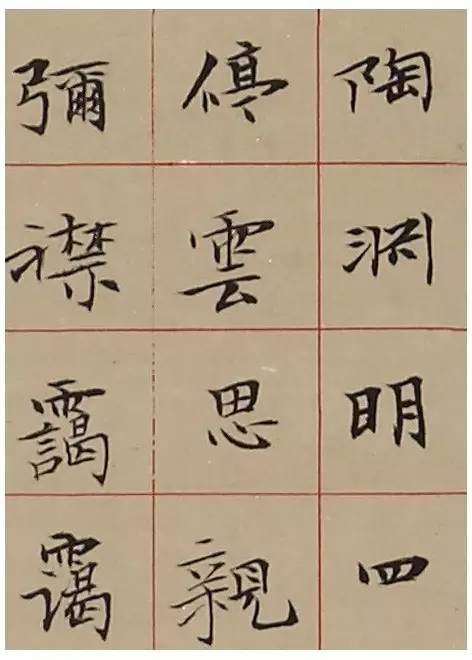 陶渊明四
停雲思親
彌襟靄靄